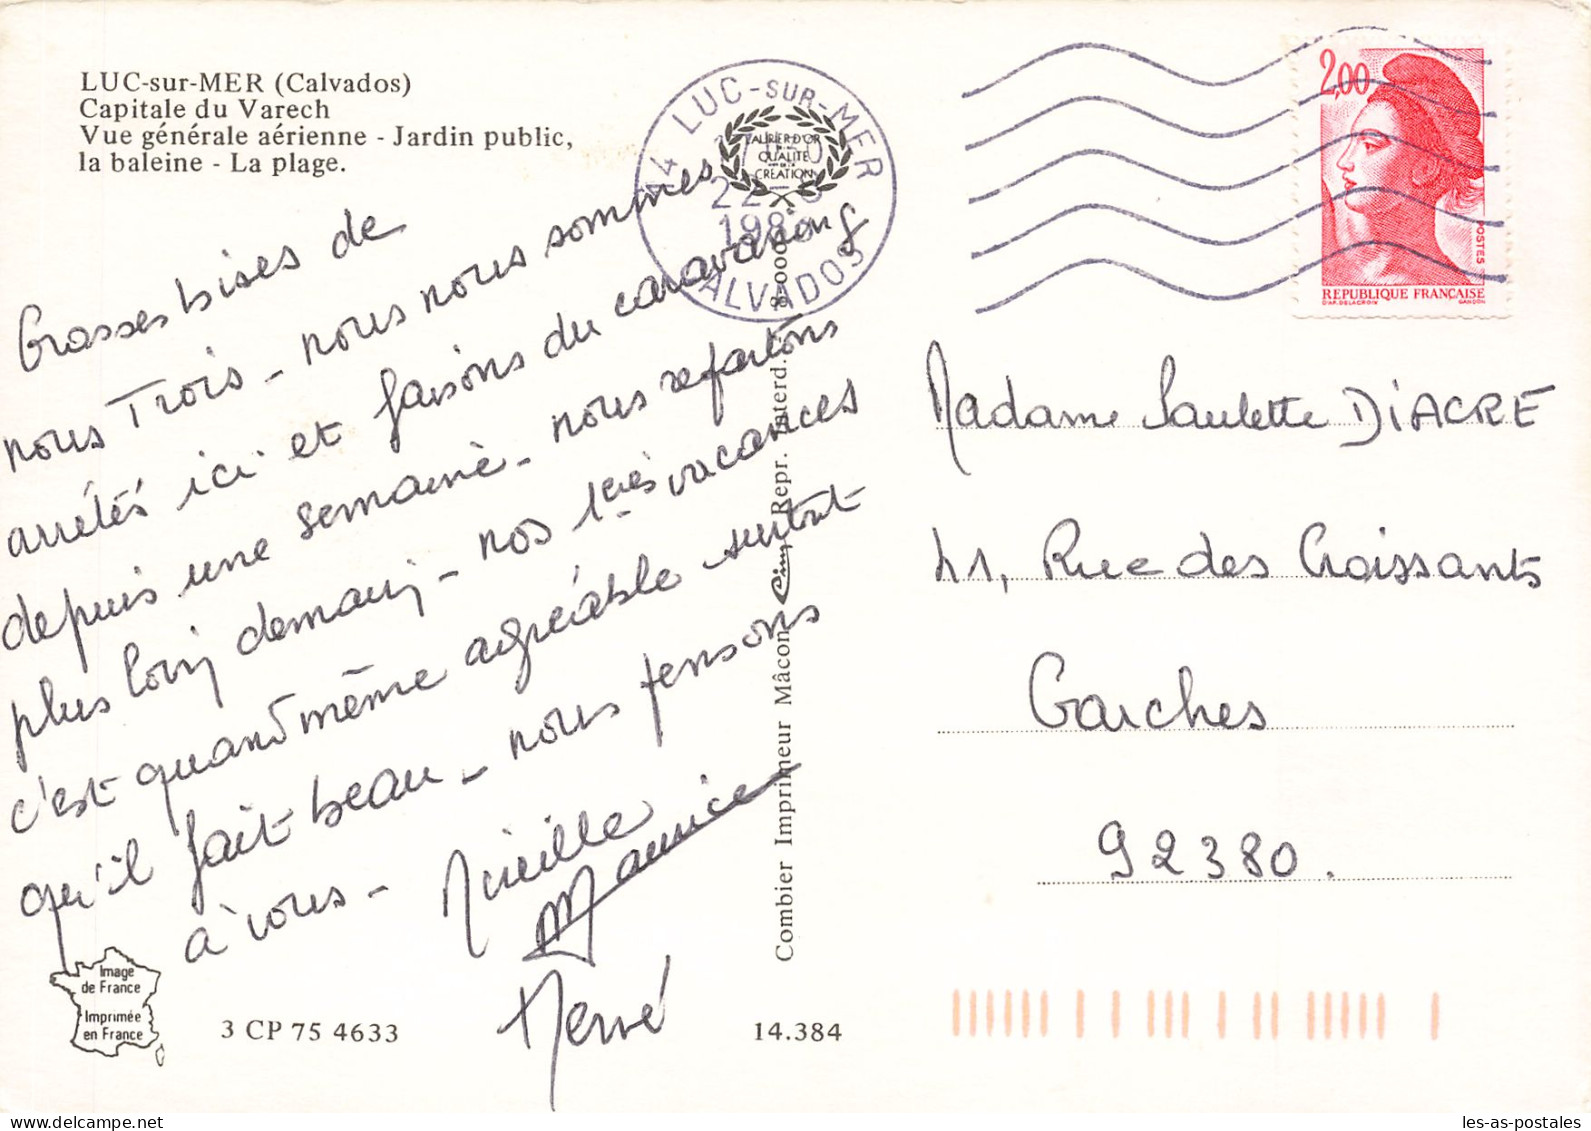 LUC-sur-MER (Calvados)
Capitale du Varech
Vue générale aérienne - Jardin public,
la baleine - La plage.
Grosses bises de
nous Trois - nous nous sommes
arrêtés ici et faisons du caravaning
depuis une semaine - nous repartons
plus loin demain - nos 1ères vacances
c'est quand même agréable surtout
qu'il fait beau - nous pensons
à vous -
Mireille
Maurice
Hervé
Image
de France
Imprimée
en France
3 CP 75 4633
14.384
Combier Imprimeur Mâcon
Cim
Repr. interd.
14 LUC-SUR-MER
LAURIER D'OR
QUALITE
CREATION
22
CALVADOS
2,00
POSTES
REPUBLIQUE FRANÇAISE
D'AP. DELACROIX GANDON
Madame Paulette DIACRE
41, Rue des Croissants
Garches
92380.
les-as-postales - delcampe.net